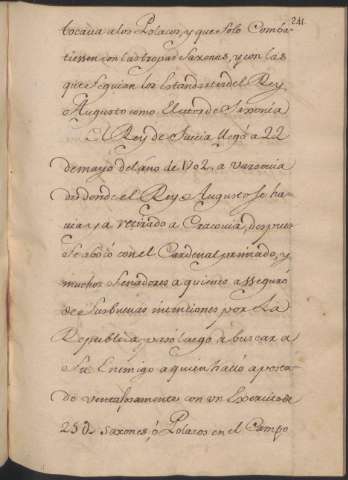 241.
tocaua a los Polacos, y que solo Comba-
tiessen con las tropas Saxonas, y con las
que seguian los Estandartes del Rey
Augusto como Elector de Saxonia
El Rey de Suecia llegó a 22
de mayo del año de 1702, a Varsouia
de donde el Rey Augusto se ha-
uia ya retirado a Cracouia, despues
se abocó con el Cardenal primado, y
muchos Senadores a quienes asseguró
de sus buenas intentiones por La
Republica, pasó luego a buscar a
Su Enemigo a quien halló aposta-
do ventajosamente con un Exercito de
25 d. Saxones, ó Polacos en el Campo